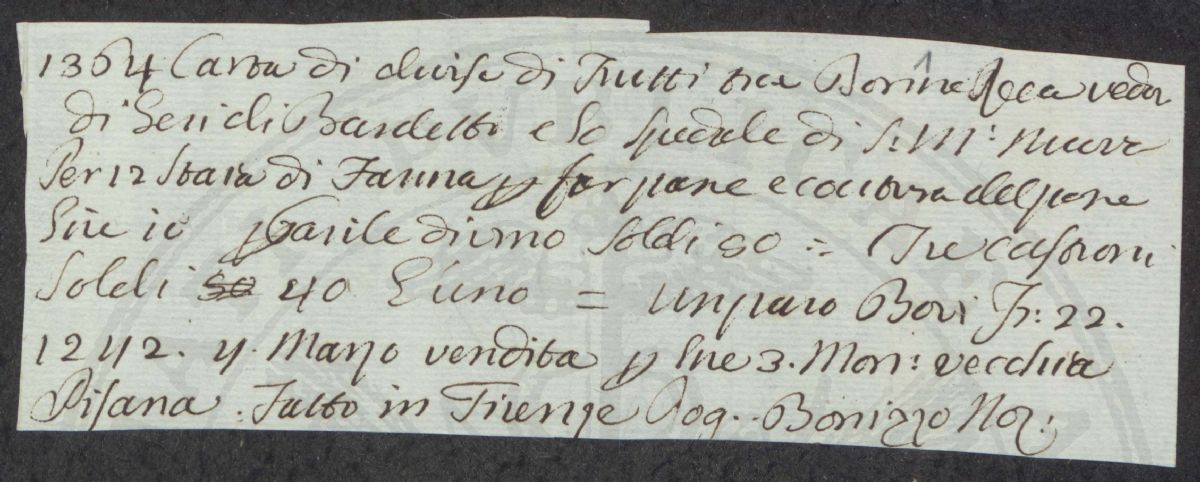 1364 Carta di divise di Frutti tra Borina Reca vedᵃ
di Geri di Bardetto e lo Spedale di S: Mᵃ: Nuova
Per 12 Staia di Farina p far pane e cocitura del pane
Lire 10 p Barile di vino Soldi 90 = Tre castroni
Soldi 40 L'uno = un paro Bovi Fr: 22.
1242. 4. Marzo vendita p Lire 3. Mon: vecchia
Pisana. Fatto in Firenze Rog. Bonizzo Not: